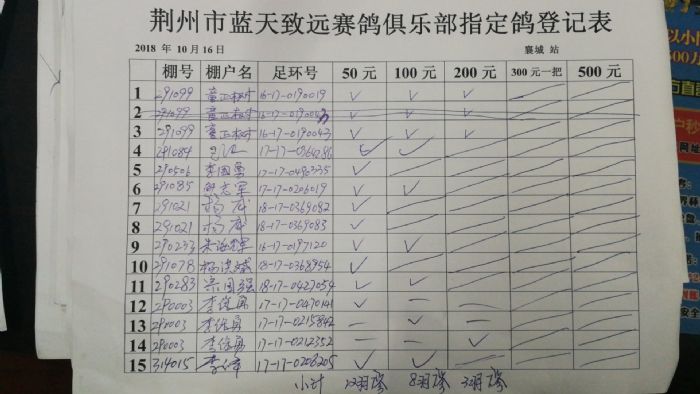 荆州市蓝天致远赛鸽俱乐部指定鸽登记表
2018 年 10 月 16 日 襄城 站
棚号 棚户名 足环号 50 元 100 元 200 元 300 元一把 500 元
1 291099 16-17-0190019 ✓ ✓ ✓
2 291099 16-17-019004 ✓ ✓ ✓
3 291099 16-17-0190043 ✓ ✓ ✓
4 291084 17-17-0364286 ✓ ✓
5 290506 李国勇 17-17-0490335 ✓
6 291085 志军 17-17-0206019 ✓ ✓
7 291021 杨威 18-17-0369082 ✓
8 291021 杨威 18-17-0369083 ✓
9 290233 16-17-0197120 ✓ ✓
10 291078 杨洪斌 18-17-0368954 ✓
11 290283 宗国强 18-17-0427054 ✓ ✓
12 290003 李俊勇 17-17-0470141 ✓ — —
13 290003 李俊勇 17-17-0215842 — ✓ —
14 290003 李俊勇 17-17-0212352 — — ✓
15 314015 17-17-0208205 ✓ ✓
小计 12羽 8羽 3羽